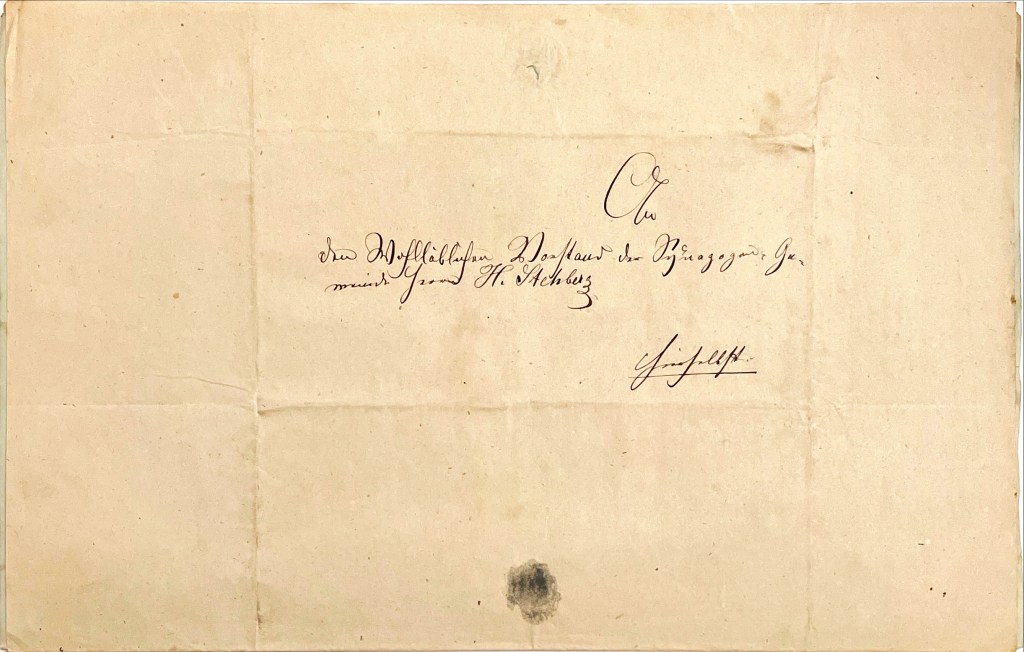 An
den Wohllöblichen Vorstand der Synagogen-Ge-
meinde Herrn H.
Hierselbst.